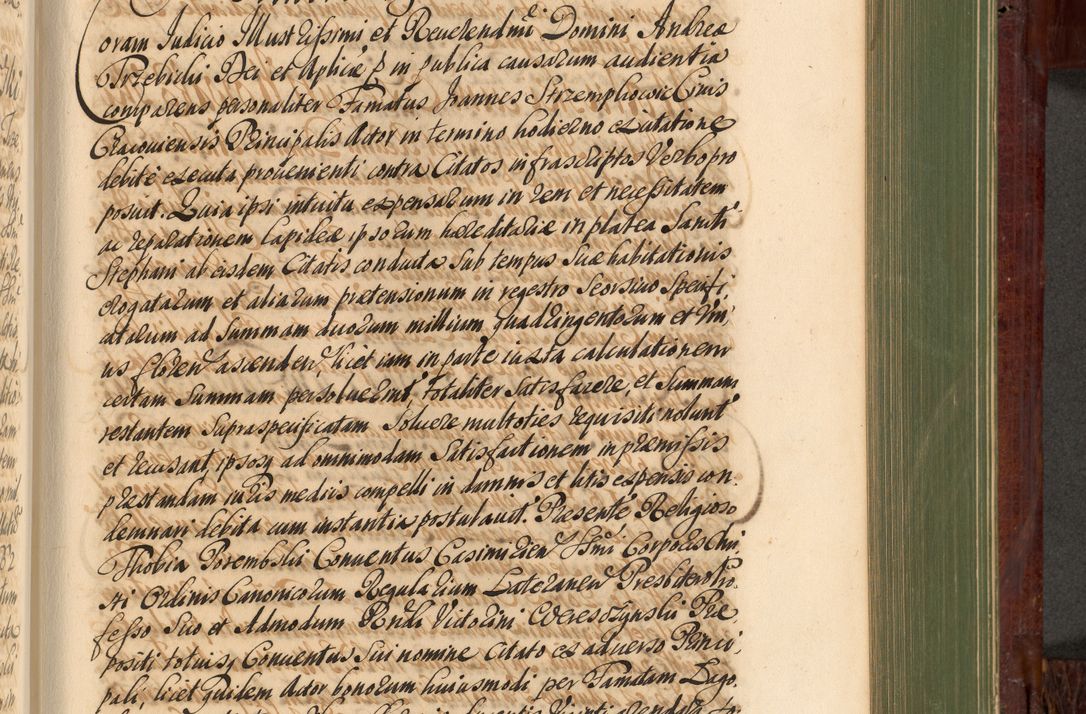 Coram Iudicio Illustrissimi et Reuerendmi Domini Andreæ
Trzebicki Dei et Aplicæ in publica causarum audientia
comparens personaliter Famatus Joannes Strzemphowic Ciuis
Cracouiensis Principalis Actor in termino hodierno ex citatione
debitè executa proueniënti contra Citatos infrascriptos Verbo pro
posuit. Quia ipsi intuitu expensarum in rem et necessitatem
ac reparationem lapideæ ipsorum hæreditariæ in platea Sancti
Stephani ab eisdem Citatis conductæ sub tempus suæ habitationis
erogatarum et aliarum prætensionum in regestro seorsiuo specifi
catarum ad summam duorum millium quadringentorum et Vin
us floren ascenden, licet iam in parte iuxta calculationem
certam Summam persoluerint, totaliter satisfacere, et Summam
restantem supraspecificatam soluere multoties requisiti nolunt
et recusant, ipsosq ad omnimodam satisfactionem in præmissis
præstandam iuris mediis compelli in damnis et litis expensis con-
demnari debita cum instantia postulauit. Præsente Religioso
Thobia Porembski Conuentus Casimirien Ssmi Corporis Chri
sti Ordinis Canonicorum Regularium Lateranen Presbitero Pro
fesso suo et Admodum Rndi Victorini Præ
positi totiusq Conuentus sui nomine Citato ex aduerso Princi
pali, licet quidem Actor bonorum huiusmodi per Famatam Lago